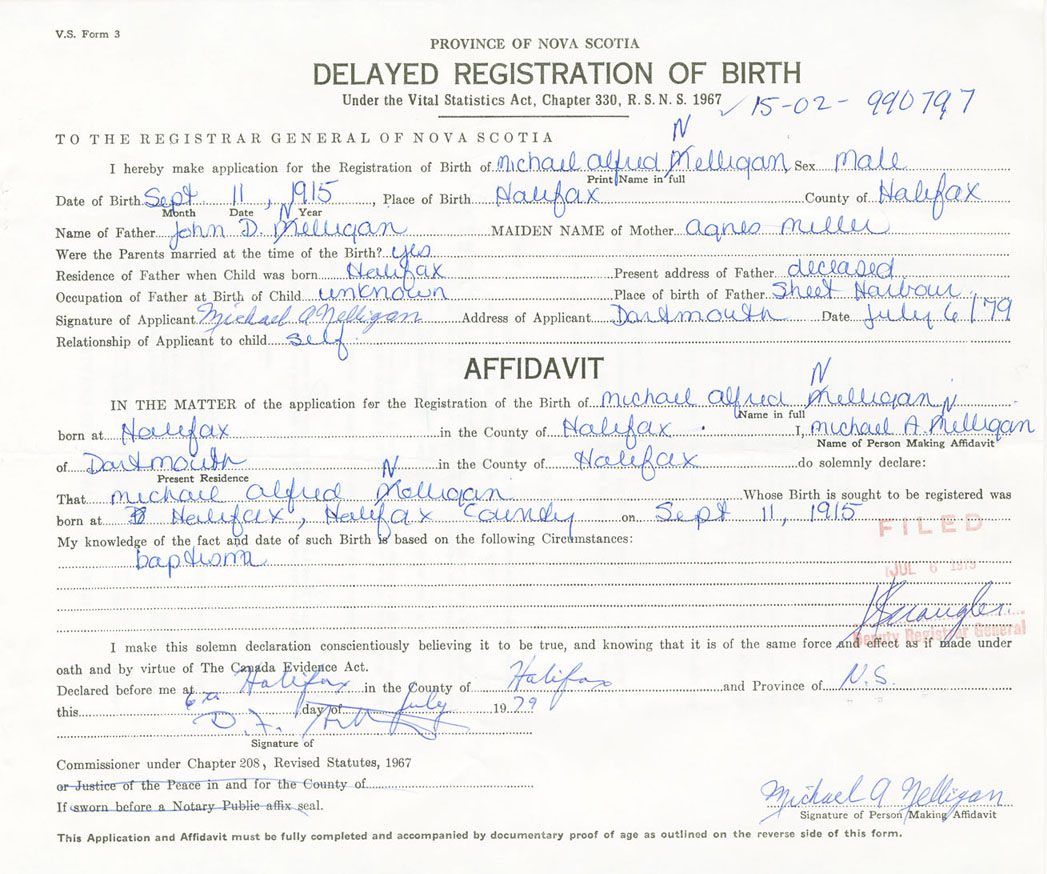 V.S. Form 3
PROVINCE OF NOVA SCOTIA
DELAYED REGISTRATION OF BIRTH
Under the Vital Statistics Act, Chapter 330, R.S.N.S. 1967 ✓ 15-02-990797
TO THE REGISTRAR GENERAL OF NOVA SCOTIA
N
I hereby make application for the Registration of Birth of Michael Alfred Melligan, Sex Male
Print Name in full
Date of Birth Sept 11, 1915, Place of Birth Halifax County of Halifax
Month Date N Year
Name of Father John D. Melligan MAIDEN NAME of Mother Agnes Miller
Were the Parents married at the time of the Birth? yes
Residence of Father when Child was born Halifax Present address of Father deceased
Occupation of Father at Birth of Child unknown Place of birth of Father Sheet Harbour
Signature of Applicant Michael A Nelligan Address of Applicant Dartmouth Date July 6/79
Relationship of Applicant to child self
AFFIDAVIT
N
IN THE MATTER of the application for the Registration of the Birth of Michael Alfred Melligan
Name in full N
born at Halifax in the County of Halifax I, Michael A. Melligan
Name of Person Making Affidavit
of Dartmouth in the County of Halifax do solemnly declare:
Present Residence N
That Michael Alfred Melligan Whose Birth is sought to be registered was
born at Halifax, Halifax County on Sept 11, 1915
FILED
My knowledge of the fact and date of such Birth is based on the following Circumstances:
baptism
JUL 6 1979
Deputy Registrar General
I make this solemn declaration conscientiously believing it to be true, and knowing that it is of the same force and effect as if made under
oath and by virtue of The Canada Evidence Act.
Declared before me at Halifax in the County of Halifax and Province of N.S.
this 6th day of July 1979
D. F.
Signature of
Commissioner under Chapter 208, Revised Statutes, 1967
or Justice of the Peace in and for the County of
If sworn before a Notary Public affix seal.
Michael A Nelligan
Signature of Person Making Affidavit
This Application and Affidavit must be fully completed and accompanied by documentary proof of age as outlined on the reverse side of this form.